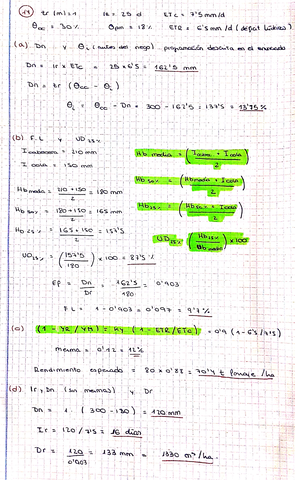 (14) zr (m) = 1 IR = 25 d ETc = 7'5 mm/d
θcc = 30 % θpm = 18 % ETR = 6'5 mm/d (déficit hídrico)
(a) Dn y θi (antes del riego) - programación descrita en el enunciado
Dn = Ir x ETc = 25 x 6'5 = 162'5 mm
Dn = zr (θcc - θi)
θi = θcc - Dn = 300 - 162'5 = 137'5 = 13'75 %
(b) F.L y UD25%
I cabecera = 210 mm
I cola = 150 mm
Hb media = (I cabec + I cola / 2)
Hb media = 210 + 150 / 2 = 180 mm
Hb 50% = (Hb media + I cola / 2)
Hb 50% = 180 + 150 / 2 = 165 mm
Hb 25% = (Hb 50% + I cola / 2)
Hb 25% = 165 + 150 / 2 = 157'5
UD 25% = (Hb 25% / Hb media) x 100
UD25% = (157'5 / 180) x 100 = 87'5 %
Ep = Dn / Dr = 162'5 / 180 = 0'903
F L = 1 - 0'903 = 0'097 = 9'7 %
(c) (1 - YR / YM) = Ky (1 - ETR / ETC) = 0'9 (1 - 6'5 / 7'5)
merma = 0'12 = 12 %
Rendimiento esperado = 80 x 0'88 = 70'4 t forraje / ha
(d) Ir, Dn (sin mermas) y Dr
Dn = 1 · (300 - 180) = 120 mm
Ir = 120 / 7'5 = 16 días
Dr = 120 / 0'903 = 133 mm = 1330 m³ / ha.